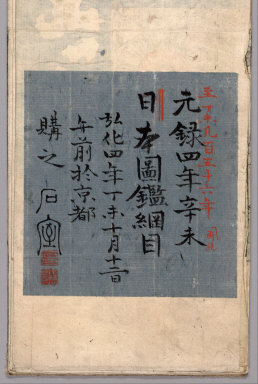 元録四年辛未
日本圖鑑綱目
弘化四年丁未十月十二日
午前於京都
購之 石室